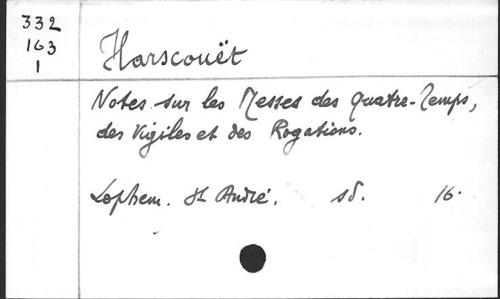 332
163
1
Harscouët
Notes sur les Messes des Quatre-Temps,
des Vigiles et des Rogations.
Lophem. St André. sd. 16.